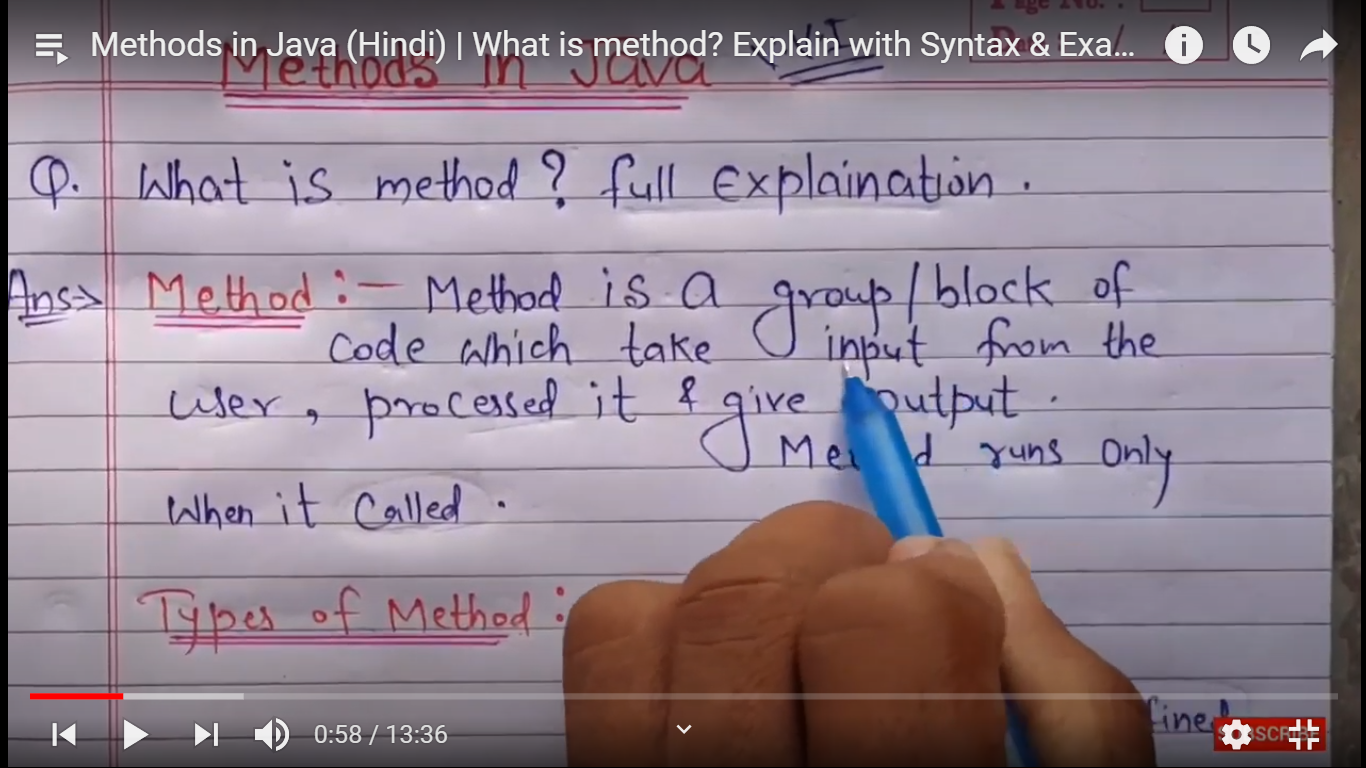 Methods in Java (Hindi) | What is method? Explain with Syntax & Exa...
Page No. :
Methods in Java
Q. What is method ? full Explaination .
Ans→ Method :- Method is a group/block of
Code which take input from the
user, processed it & give output .
runs Only
When it Called .
Types of Method :
fined
0:58 / 13:36
SUBSCRIBE